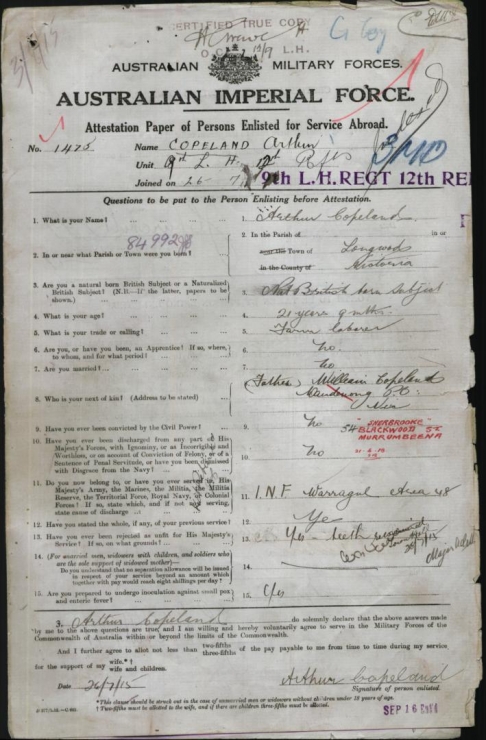 CERTIFIED TRUE COPY
AUSTRALIAN MILITARY FORCES.
AUSTRALIAN IMPERIAL FORCE.
Attestation Paper of Persons Enlisted for Service Abroad.
No. 1475 Name COPELAND Arthur
Unit 9th L. H.
Joined on 26-7
9th L.H.REGT 12th REI
Questions to be put to the Person Enlisting before Attestation.
1. What is your Name? 1. Arthur Copeland
2. In or near what Parish or Town were you born? 2. In the Parish of in or
near the Town of Longwood
in the County of Victoria
3. Are you a natural born British Subject or a Naturalized British Subject? (N.B.—If the latter, papers to be shown.) 3. Nat British born Subject
4. What is your age? 4. 21 years 9 mths.
5. What is your trade or calling? 5. Farm laborer
6. Are you, or have you been, an Apprentice? If so, where, to whom, and for what period? 6. No.
7. Are you married? 7. No.
8. Who is your next of kin? (Address to be stated) (Father) William Copeland
P.O.
Vic
SHERBROOKE
54 BLACKWOOD ST
MURRUMBEENA
9. Have you ever been convicted by the Civil Power? 9. No
10. Have you ever been discharged from any part of His Majesty's Forces, with Ignominy, or as Incorrigible and Worthless, or on account of Conviction of Felony, or of a Sentence of Penal Servitude, or have you been dismissed with Disgrace from the Navy? 10. No
11. Do you now belong to, or have you ever served in, His Majesty's Army, the Marines, the Militia, the Militia Reserve, the Territorial Force, Royal Navy, or Colonial Forces? If so, state which, and if not now serving, state cause of discharge 11. Warragul Area 48
12. Have you stated the whole, if any, of your previous service? 12. Yes
13. Have you ever been rejected as unfit for His Majesty's Service? If so, on what grounds? 13. Yes - teeth
14. (For married men, widowers with children, and soldiers who are the sole support of widowed mother—
Do you understand that no separation allowance will be issued in respect of your service beyond an amount which together with pay would reach eight shillings per day? 14.
15. Are you prepared to undergo inoculation against small pox and enteric fever? 15. Yes
3. Arthur Copeland do solemnly declare that the above answers made
by me to the above questions are true, and I am willing and hereby voluntarily agree to serve in the Military Forces of the
Commonwealth of Australia within or beyond the limits of the Commonwealth.
And I further agree to allot not less than two-fifths three-fifths of the pay payable to me from time to time during my service
for the support of my wife.* wife and children.
Date 26/7/15 Arthur Copeland
Signature of person enlisted.
*This clause should be struck out in the case of unmarried men or widowers without children under 18 years of age.
† Two-fifths must be allotted to the wife, and if there are children three-fifths must be allotted.
SEP 16